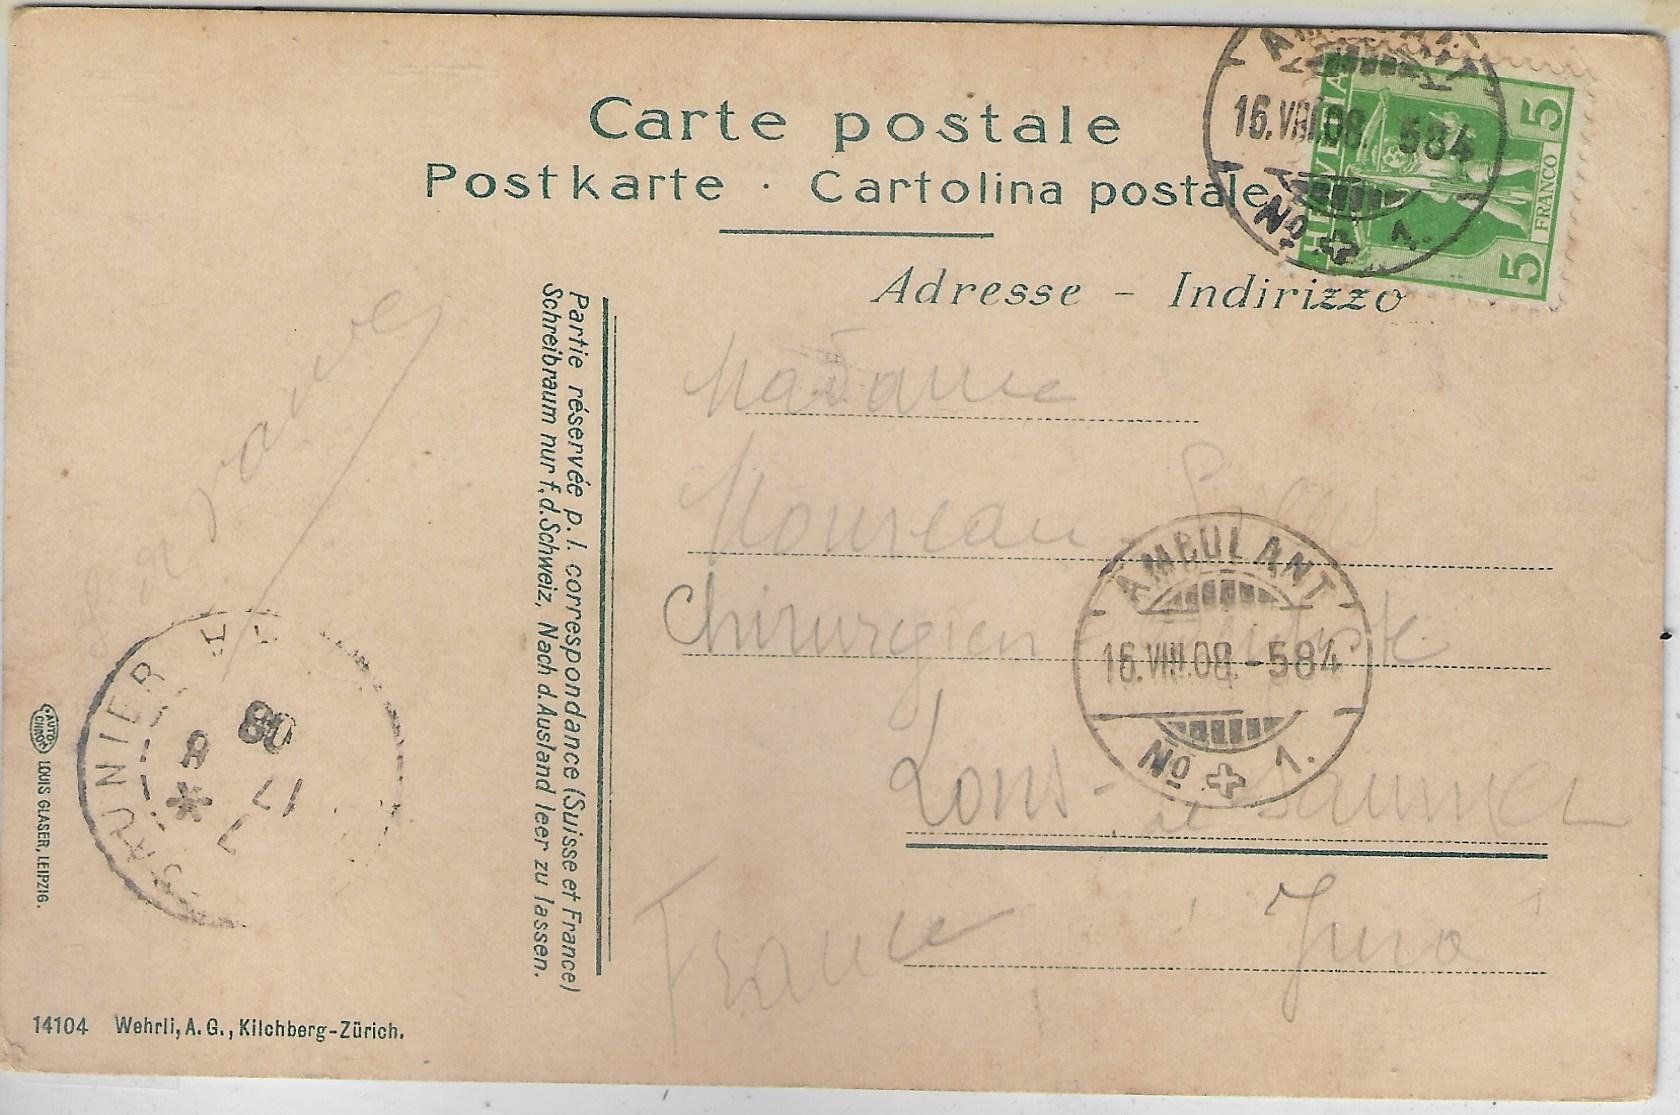 Carte postale
Postkarte · Cartolina postale
Adresse – Indirizzo
HELVETIA
5
FRANCO
5
16.VIII.08. 584
No 1.
Partie réservée p. l. correspondance (Suisse et France)
Schreibraum nur f. d. Schweiz, Nach d. Ausland leer zu lassen.
Madame
Chirurgien-Dentiste
Lons-le Saunier
Jura
France
AMBULANT
16.VIII.08.-584
No 1.
SAUNIER
17
8
08
AUTO
CHROM
LOUIS GLASER, LEIPZIG.
14104 Wehrli, A.G., Kilchberg-Zürich.